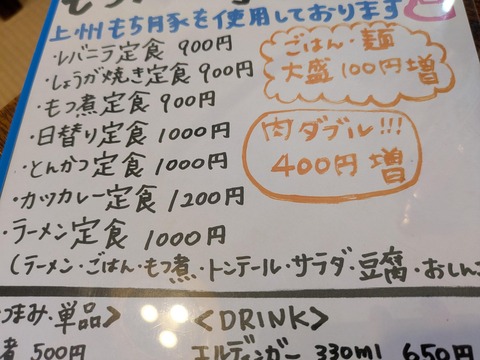 上州もち豚を使用しております
・レバニラ定食 900円
・しょうが焼き定食 900円
・もつ煮定食 900円
・日替り定食 1000円
・とんかつ定食 1000円
・カツカレー定食 1200円
・ラーメン定食 1000円
(ラーメン・ごはん・もつ煮・トンテール・サラダ・豆腐・おしんこ
ごはん・麺
大盛100円増
肉ダブル!!!
400円増
つまみ・単品>
煮 500円
<DRINK>
エルディンガー 330ml 650円